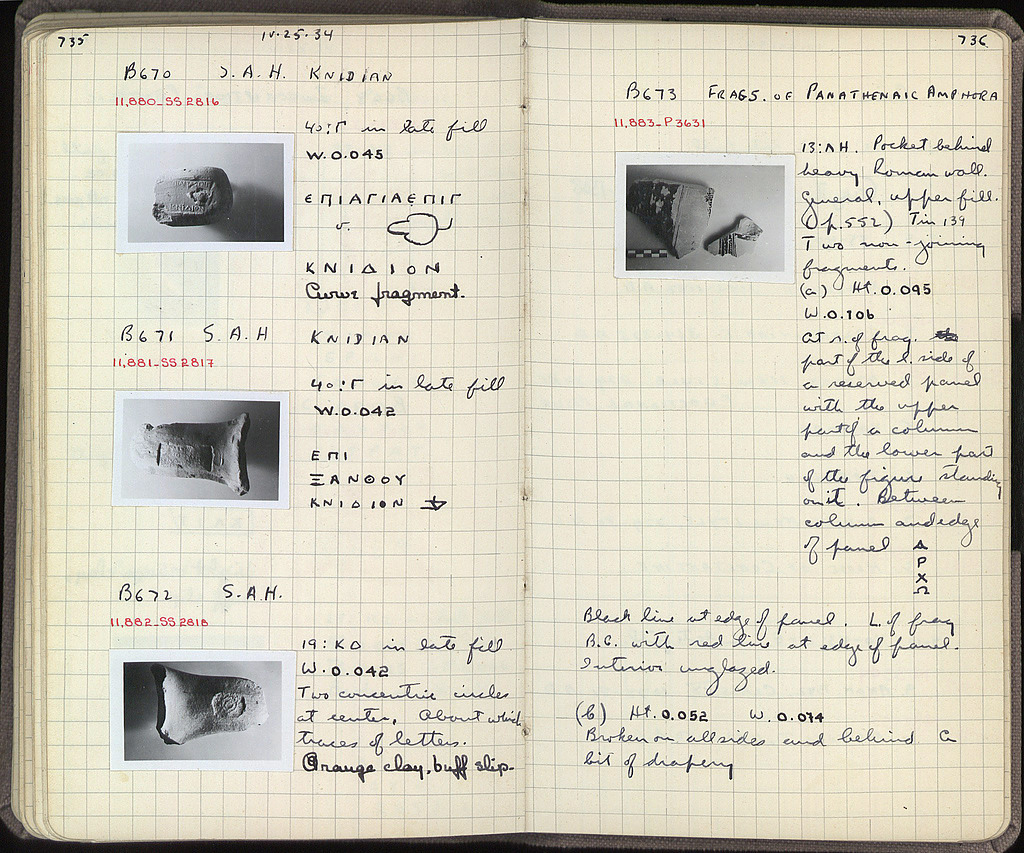 735
IV·25·34
B670 S.A.H. KNIDIAN
11,880-SS 2816
40:Γ in late fill
W. 0.045
ΕΠΙΑΓΙΑΕΠΙΓ
ΚΝΙΔΙΟΝ
Curve fragment.
B671 S.A.H KNIDIAN
11,881-SS 2817
40:Γ in late fill
W. 0.042
ΕΠΙ
ΞΑΝΘΟΥ
ΚΝΙΔΙΟΝ
B672 S.A.H.
11,882-SS 2818
19:ΚΔ in late fill
W. 0.042
Two concentric circles
at center, about which
traces of letters.
Orange clay, buff slip.
736
B673 FRAGS. OF PANATHENAIC AMPHORA
11,883-P 3631
13:ΛΗ. Pocket behind
heavy Roman wall.
General, upper fill.
(p. 552) Tin 139
Two non-joining
fragments.
(a) Ht. 0.095
W. 0.106
At r. of frag.
part of the l. side of
a reserved panel
with the upper
part of a column
and the lower part
of the figure standing
on it. Between
column and edge
of panel Α
Ρ
Χ
Ω
Black line at edge of panel. L. of frag
B.G. with red line at edge of panel.
Interior unglazed.
(b) Ht. 0.052 W. 0.074
Broken on all sides and behind a
bit of drapery